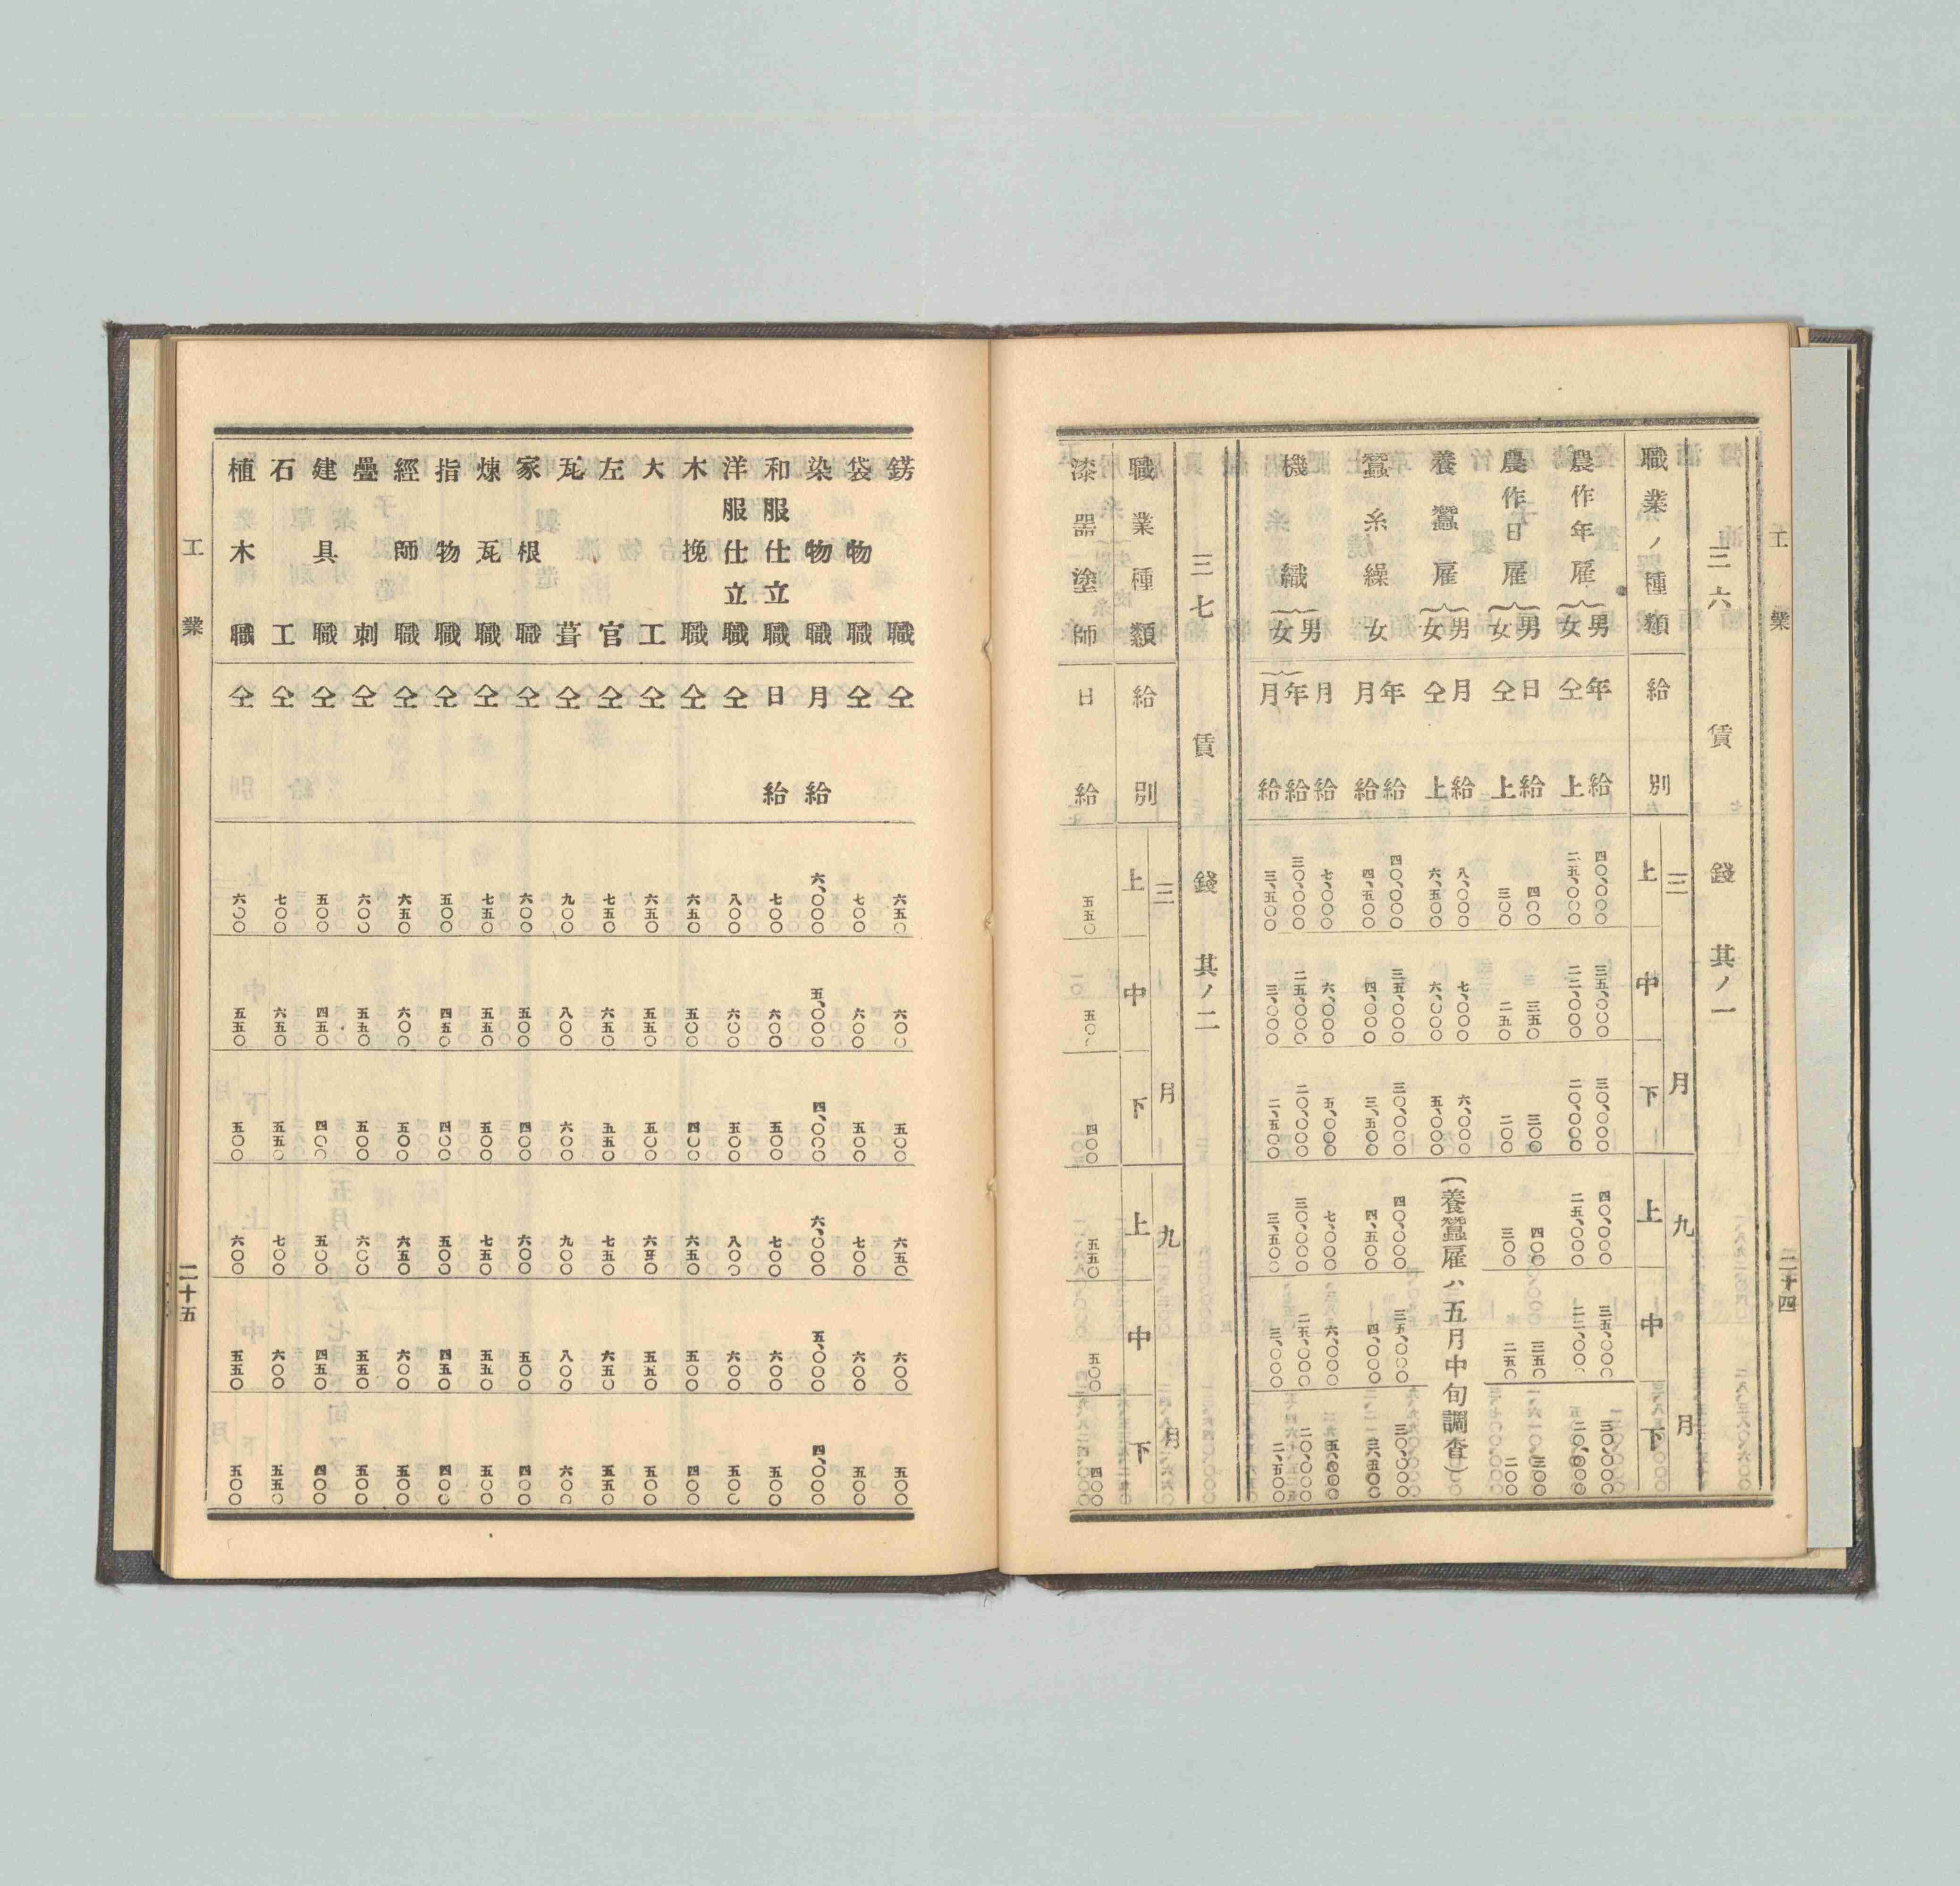 工業 二十四
三六 賃錢 其ノ一
職業ノ種類 給別 三月 上 中 下 九月 上 中 下
農作年雇 男 年給 四〇、〇〇〇 三五、〇〇〇 三〇、〇〇〇 四〇、〇〇〇 三五、〇〇〇 三〇、〇〇〇
女 仝上 二五、〇〇〇 二二、〇〇〇 二〇、〇〇〇 二五、〇〇〇 二二、〇〇〇 二〇、〇〇〇
農作日雇 男 日給 四〇〇 三五〇 三〇〇 四〇〇 三五〇 三〇〇
女 仝上 三〇〇 二五〇 二〇〇 三〇〇 二五〇 二〇〇
養蠶雇 男 月給 八、〇〇〇 七、〇〇〇 六、〇〇〇
女 仝上 六、五〇〇 六、〇〇〇 五、〇〇〇
(養蠶雇ハ五月中旬調査)
蠶糸繰 女 年給 四〇、〇〇〇 三五、〇〇〇 三〇、〇〇〇 四〇、〇〇〇 三五、〇〇〇 三〇、〇〇〇
月給 四、五〇〇 四、〇〇〇 三、五〇〇 四、五〇〇 四、〇〇〇 三、五〇〇
機織 男 月給 七、〇〇〇 六、〇〇〇 五、〇〇〇 七、〇〇〇 六、〇〇〇 五、〇〇〇
女 年給 三〇、〇〇〇 二五、〇〇〇 二〇、〇〇〇 三〇、〇〇〇 二五、〇〇〇 二〇、〇〇〇
月給 三、五〇〇 三、〇〇〇 二、五〇〇 三、五〇〇 三、〇〇〇 二、五〇〇
三七 賃錢 其ノ二
職業種類 給別 三月 上 中 下 九月 上 中 下
漆器塗師 日給 五五〇 五〇〇 四〇〇 五五〇 五〇〇 四〇〇
錺職 仝 六五〇 六〇〇 五〇〇 六五〇 六〇〇 五〇〇
袋物職 仝 七〇〇 六〇〇 五〇〇 七〇〇 六〇〇 五〇〇
染物職 月給 六、〇〇〇 五、〇〇〇 四、〇〇〇 六、〇〇〇 五、〇〇〇 四、〇〇〇
和服仕立職 日給 七〇〇 六〇〇 五〇〇 七〇〇 六〇〇 五〇〇
洋服仕立職 仝 八〇〇 六〇〇 五〇〇 八〇〇 六〇〇 五〇〇
木挽職 仝 六五〇 五〇〇 四〇〇 六五〇 五〇〇 四〇〇
大工 仝 六五〇 五五〇 五〇〇 六五〇 五五〇 五〇〇
左官 仝 七五〇 六五〇 五五〇 七五〇 六五〇 五五〇
瓦葺 仝 九〇〇 八〇〇 六〇〇 九〇〇 八〇〇 六〇〇
家根職 仝 六〇〇 五〇〇 四〇〇 六〇〇 五〇〇 四〇〇
煉瓦職 仝 七五〇 五五〇 五〇〇 七五〇 五五〇 五〇〇
指物職 仝 五〇〇 四五〇 四〇〇 五〇〇 四五〇 四〇〇
經師職 仝 六五〇 六〇〇 五〇〇 六五〇 六〇〇 五〇〇
疊刺 仝 六〇〇 五五〇 五〇〇 六〇〇 五五〇 五〇〇
建具職 仝 五〇〇 四五〇 四〇〇 五〇〇 四五〇 四〇〇
石工 仝 七〇〇 六五〇 五五〇 七〇〇 六〇〇 五五〇
植木職 仝 六〇〇 五五〇 五〇〇 六〇〇 五五〇 五〇〇
工業 二十五